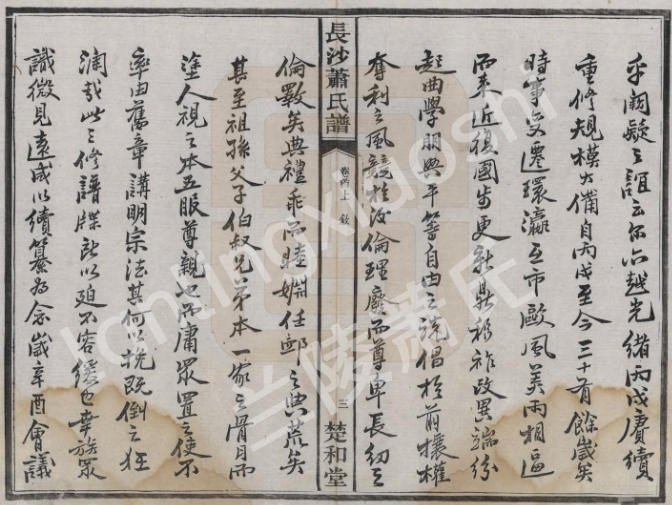 乎闕疑之誼云尔亦越光緒丙戌賡續
重修規模大備自丙戌至今三十有餘歲矣
時事变遷環瀛互市歐風美雨相逼
而来近復國步更新鼎移祚改異端紛
起曲學朋興平等自由之说倡於前攘權
奪利之風競於後倫理廢而尊卑長幼之
長沙蕭氏譜
卷首上 敘
三
楚和堂
倫斁矣典禮乖而睦婣任卹之典荒矣
甚至祖孫父子伯叔兄弟本一家之骨肉而
塗人視之本五服尊親也而庸衆置之使不
率由舊章講明宗法其何以挽既倒之狂
瀾哉此之修譜牒所以迫不容缓也幸族眾
識微見遠咸以續纂为念歲辛酉會議
lantingxiaoshi
兰陵萧氏